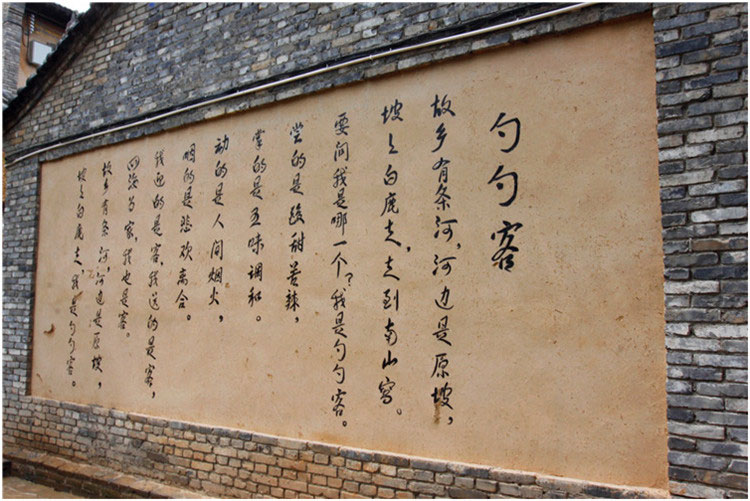 勺勺客
故乡有条河，河边是原坡，
坡上白鹿走，走到南山窝。
要问我是哪一个？我是勺勺客。
尝的是酸甜苦辣，
掌的是五味调和。
动的是人间烟火，
咽的是悲欢离合。
我迎的是客，我送的是客，
四海为家，我也是客。
故乡有条河，河边是原坡，
坡上白鹿走，我是勺勺客。